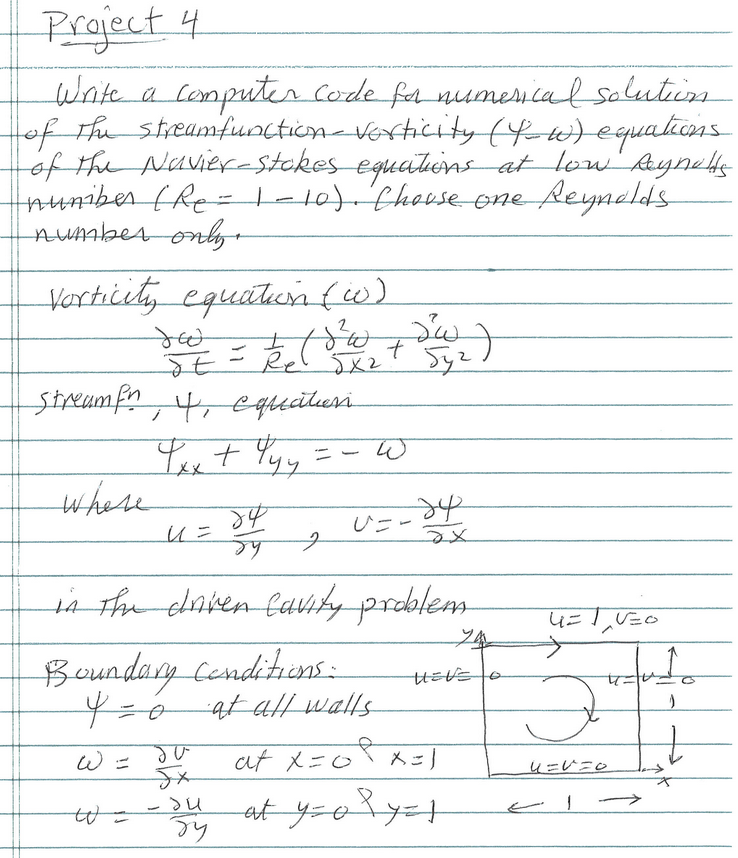 Project 4
Write a computer code for numerical solution
of the streamfunction-vorticity (ψ-ω) equations
of the Navier-Stokes equations at low Reynolds
number (Re = 1-10). Choose one Reynolds
number only.
Vorticity equation (ω)
∂ω/∂t = 1/Re (∂²ω/∂x² + ∂²ω/∂y²)
Streamfn, ψ, equation
ψxx + ψyy = - ω
where
u = ∂ψ/∂y , v = - ∂ψ/∂x
in the driven cavity problem
u=1, v=0
y
Boundary Conditions:
u=v=0
u=v=0
1
ψ = 0 at all walls
ω = ∂v/∂x at x=0 & x=1
u=v=0
x
ω = -∂u/∂y at y=0 & y=1
← 1 →